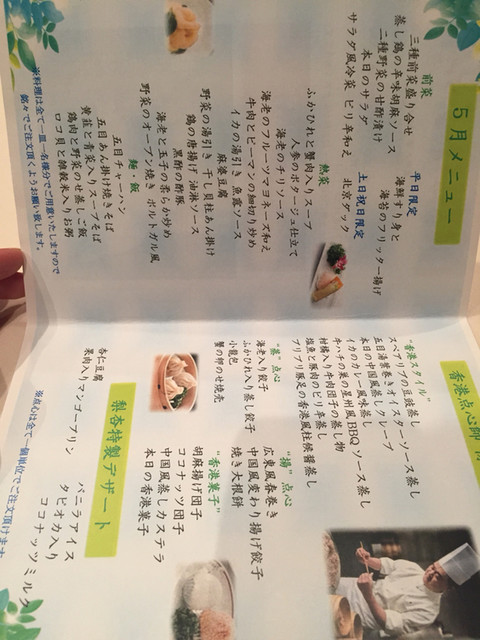 5月メニュー
前菜
三種前菜盛り合せ
蒸し鶏の辛味胡麻ソース
二種野菜の甘酢漬け
本日のサラダ
サラダ風冷菜 ピリ辛和え
平日限定
海鮮すり身と
海苔のフリッター揚げ
土日祝日限定
北京ダック
熱菜
ふかひれと蟹肉入りスープ
人参のポタージュ仕立て
海老のチリソース
海老のフルーツマヨネーズ和え
牛肉とピーマンの細切り炒め
イカの湯引き 魚露ソース
麻婆豆腐
野菜の湯引き 干し貝柱あん掛け
鶏の唐揚げ 油淋ソース
黒酢の酢豚
海老と玉子の柔らか炒め
野菜のオーブン焼き ポルトガル風
麺・飯
五目チャーハン
五目あん掛け焼きそば
黄韮と青菜入りスープそば
鶏肉と野菜のせ蒸しご飯
ロコ貝と雑穀米入りお粥
※料理は全て一皿一名様分でご用意いたしますので
銘々でご注文頂くようお願い致します。
香港点心師
"香港スタイル"
スペアリブの豆豉蒸し
五目湯葉巻きオイスターソース蒸し
本日の中国風蒸しクレープ
イカのカレー風味蒸し
牛ハチの巣の星州風BBQソース蒸し
柑橘入り牛肉団子の蒸し物
塩魚と豚肉のピリ辛蒸し
プリプリ豚足の香港風柱候醤蒸し
"蒸"点心
海老入り餃子
ふかひれ入り蒸し餃子
小籠包
蟹の卵のせ焼売
"揚"点心
広東風春巻き
中国風変わり揚げ餃子
焼き大根餅
"香港菓子"
胡麻揚げ団子
ココナッツ団子
中国風蒸しカステラ
本日の香港菓子
梨杏特製デザート
杏仁豆腐
果肉入りマンゴープリン
バニラアイス
タピオカ入り
ココナッツミルク
※点心は全て一個単位でご注文頂けます